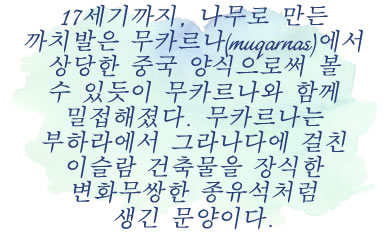 17세기까지, 나무로 만든
까치발은 무카르나(muqarnas)에서
상당한 중국 양식으로써 볼
수 있듯이 무카르나와 함께
밀접해졌다. 무카르나는
부하라에서 그라나다에 걸친
이슬람 건축물을 장식한
변화무쌍한 종유석처럼
생긴 문양이다.